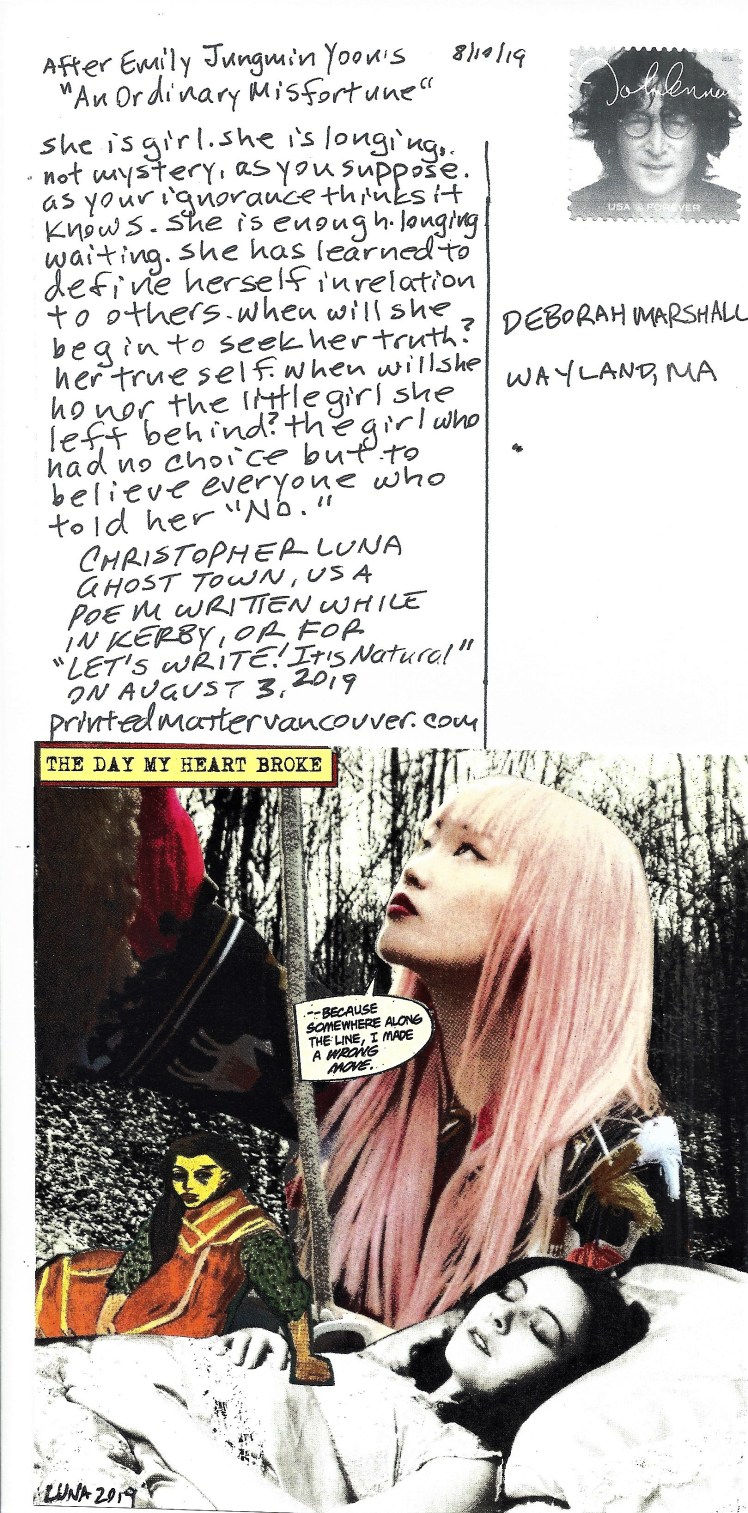 After Emily Jungmin Yoon's 8/10/19
"An Ordinary Misfortune"
she is girl. she is longing,
not mystery, as you suppose.
as your ignorance thinks it
knows. she is enough. longing
waiting. she has learned to
define herself in relation
to others. when will she
begin to seek her truth?
her true self. when will she
honor the little girl she
left behind? the girl who
had no choice but to
believe everyone who
told her "No."
CHRISTOPHER LUNA
GHOST TOWN, USA
POEM WRITTEN WHILE
IN KERBY, OR FOR
"LET'S WRITE! It is Natural"
ON AUGUST 3, 2019
printedmattervancouver.com
John Lennon
USA FOREVER
DEBORAH MARSHALL
WAYLAND, MA
THE DAY MY HEART BROKE
--BECAUSE
SOMEWHERE ALONG
THE LINE, I MADE
A WRONG
MOVE.
LUNA 2019